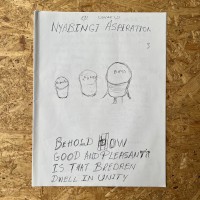 NYABINGI ASPIRATION
BEHOLD HOW
GOOD AND PLEASANT IT
IS THAT BREDREN
DWELL IN UNITY